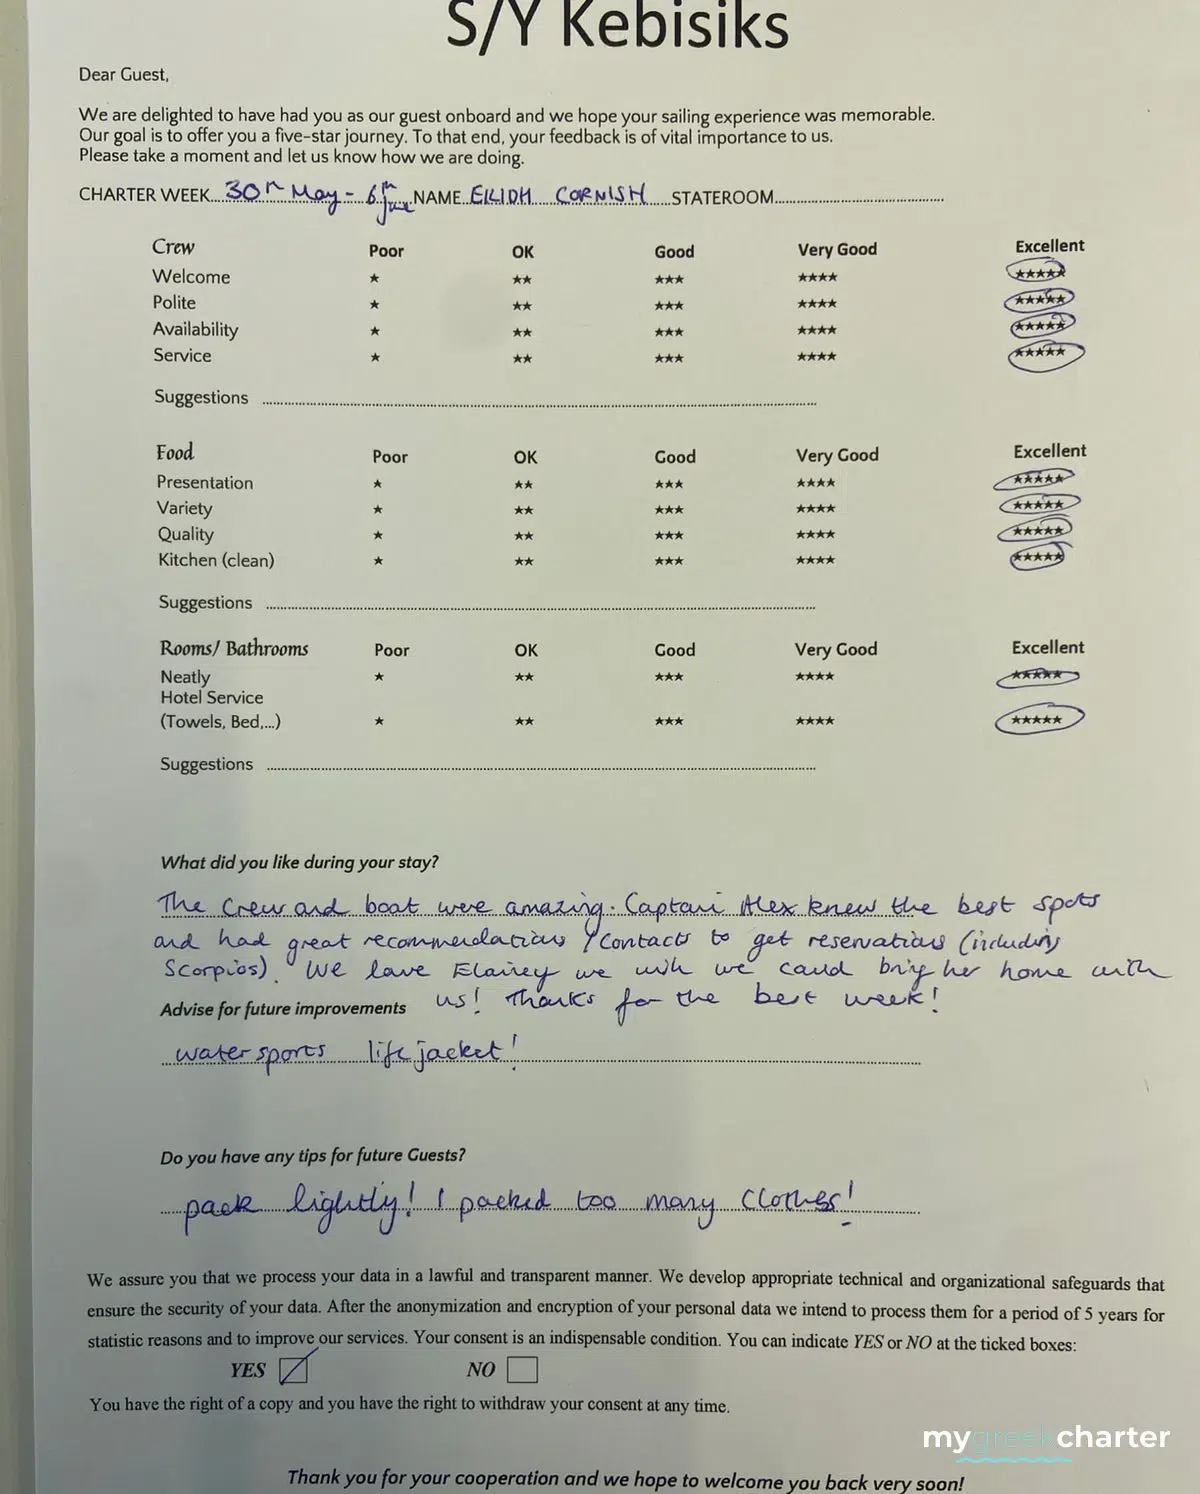 S/Y Kebisiks
Dear Guest,
We are delighted to have had you as our guest onboard and we hope your sailing experience was memorable.
Our goal is to offer you a five-star journey. To that end, your feedback is of vital importance to us.
Please take a moment and let us know how we are doing.
CHARTER WEEK....30th May - 6th June NAME..EILIDH CORNISH.....STATEROOM..........
Crew Poor OK Good Very Good Excellent
Welcome ★ ★★ ★★★ ★★★★ ★★★★★
Polite ★ ★★ ★★★ ★★★★ ★★★★★
Availability ★ ★★ ★★★ ★★★★ ★★★★★
Service ★ ★★ ★★★ ★★★★ ★★★★★
Suggestions ..........
Food Poor OK Good Very Good Excellent
Presentation ★ ★★ ★★★ ★★★★ ★★★★★
Variety ★ ★★ ★★★ ★★★★ ★★★★★
Quality ★ ★★ ★★★ ★★★★ ★★★★★
Kitchen (clean) ★ ★★ ★★★ ★★★★ ★★★★★
Suggestions ..........
Rooms/ Bathrooms Poor OK Good Very Good Excellent
Neatly ★ ★★ ★★★ ★★★★ ★★★★★
Hotel Service
(Towels, Bed,...) ★ ★★ ★★★ ★★★★ ★★★★★
Suggestions ..........
What did you like during your stay?
The crew and boat were amazing. Captain Alex knew the best spots
and had great recommendations / contacts to get reservations (including
Scorpios). We love Elainey we wish we could bring her home with
us! Thanks for the best week!
Advise for future improvements
water sports life jacket!
Do you have any tips for future Guests?
pack lightly! I packed too many clothes!
We assure you that we process your data in a lawful and transparent manner. We develop appropriate technical and organizational safeguards that
ensure the security of your data. After the anonymization and encryption of your personal data we intend to process them for a period of 5 years for
statistic reasons and to improve our services. Your consent is an indispensable condition. You can indicate YES or NO at the ticked boxes:
YES NO
You have the right of a copy and you have the right to withdraw your consent at any time.
mygreekcharter
Thank you for your cooperation and we hope to welcome you back very soon!